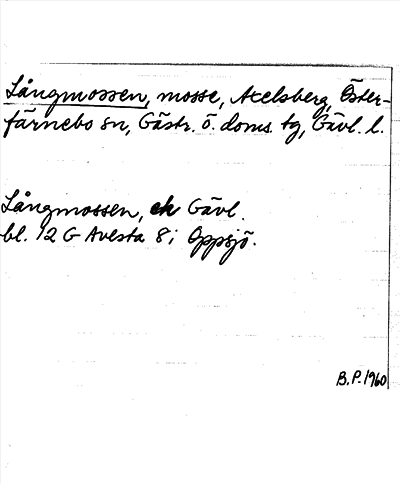 Långmossen, mosse, Axelsberg, Öster-
färnebo sn, Gästr. ö. doms. tg, Gävl. l.
Långmossen, ek Gävl.
bl. 12 G Avesta 8 i Oppsjö.
B.P. 1960